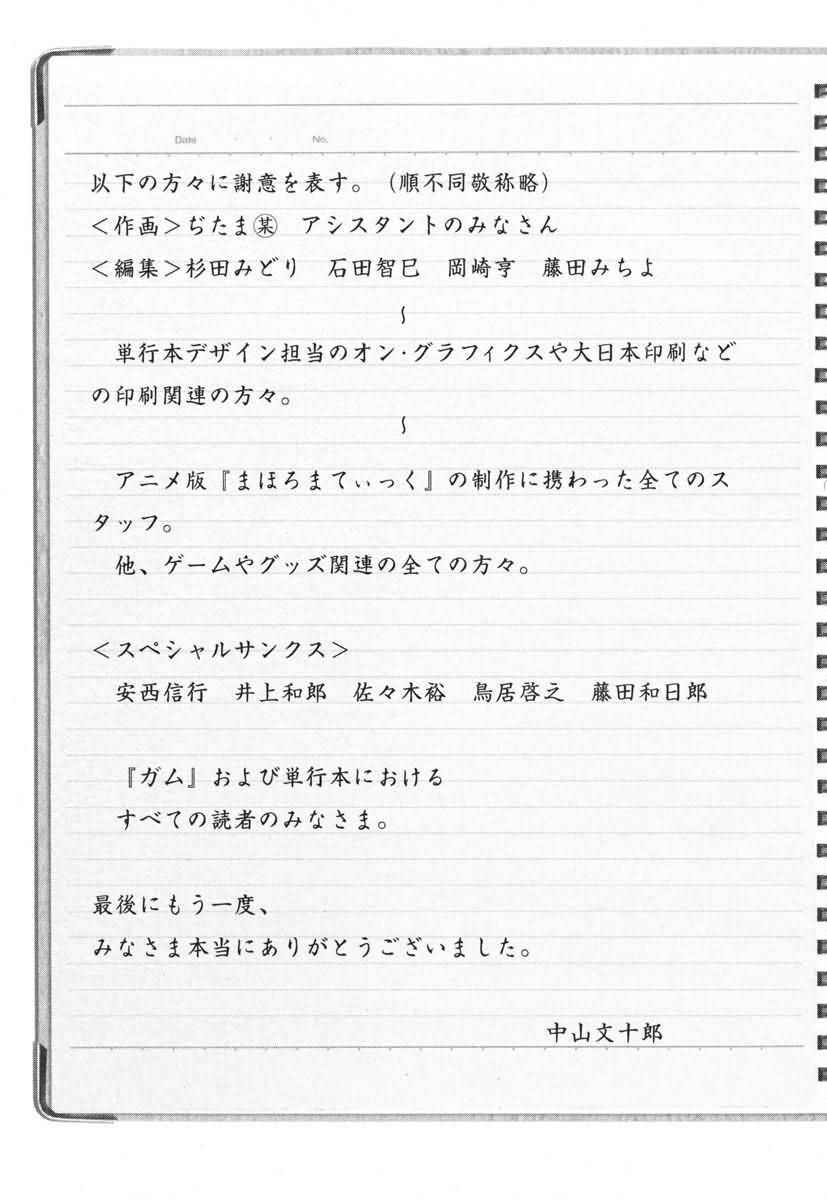 Date ・ ・ No.
以下の方々に謝意を表す。(順不同敬称略)
<作画>ぢたま㊣某 アシスタントのみなさん
<編集>杉田みどり 石田智巳 岡崎亨 藤田みちよ
~
単行本デザイン担当のオン・グラフィクスや大日本印刷など
の印刷関連の方々。
~
アニメ版『まほろまてぃっく』の制作に携わった全てのス
タッフ。
他、ゲームやグッズ関連の全ての方々。
<スペシャルサンクス>
安西信行 井上和郎 佐々木裕 鳥居啓之 藤田和日郎
『ガム』および単行本における
すべての読者のみなさま。
最後にもう一度、
みなさま本当にありがとうございました。
中山文十郎